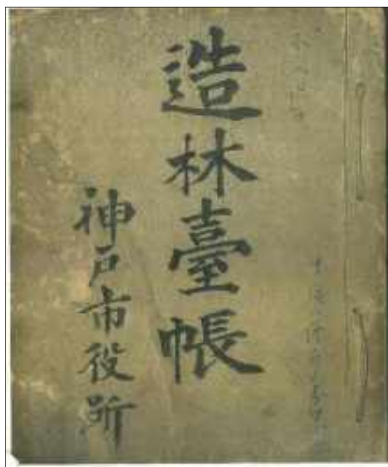 造林臺帳
神戸市役所